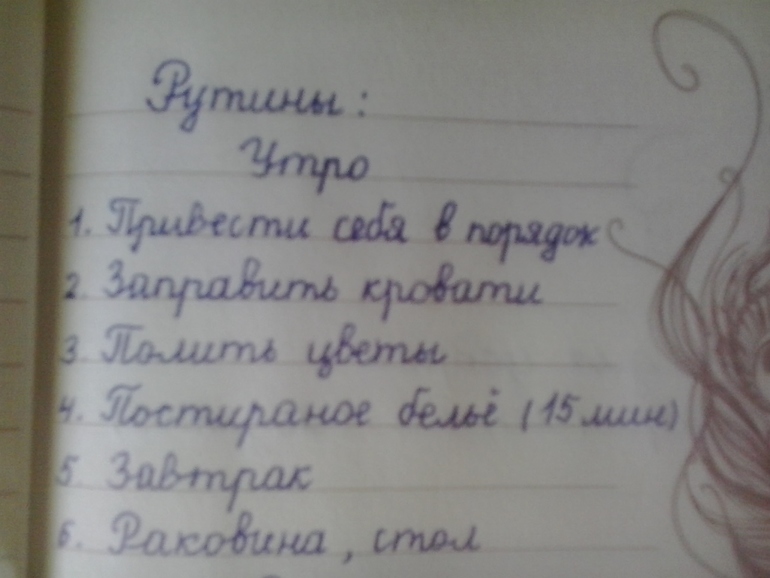 Рутины:
Утро
1. Привести себя в порядок
2. Заправить кровати
3. Полить цветы
4. Постираное бельё (15 мин)
5. Завтрак
6. Раковина, стол